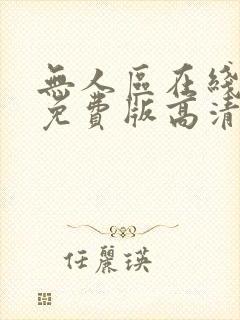 無人區在綫
免費版高清
任麗瑛